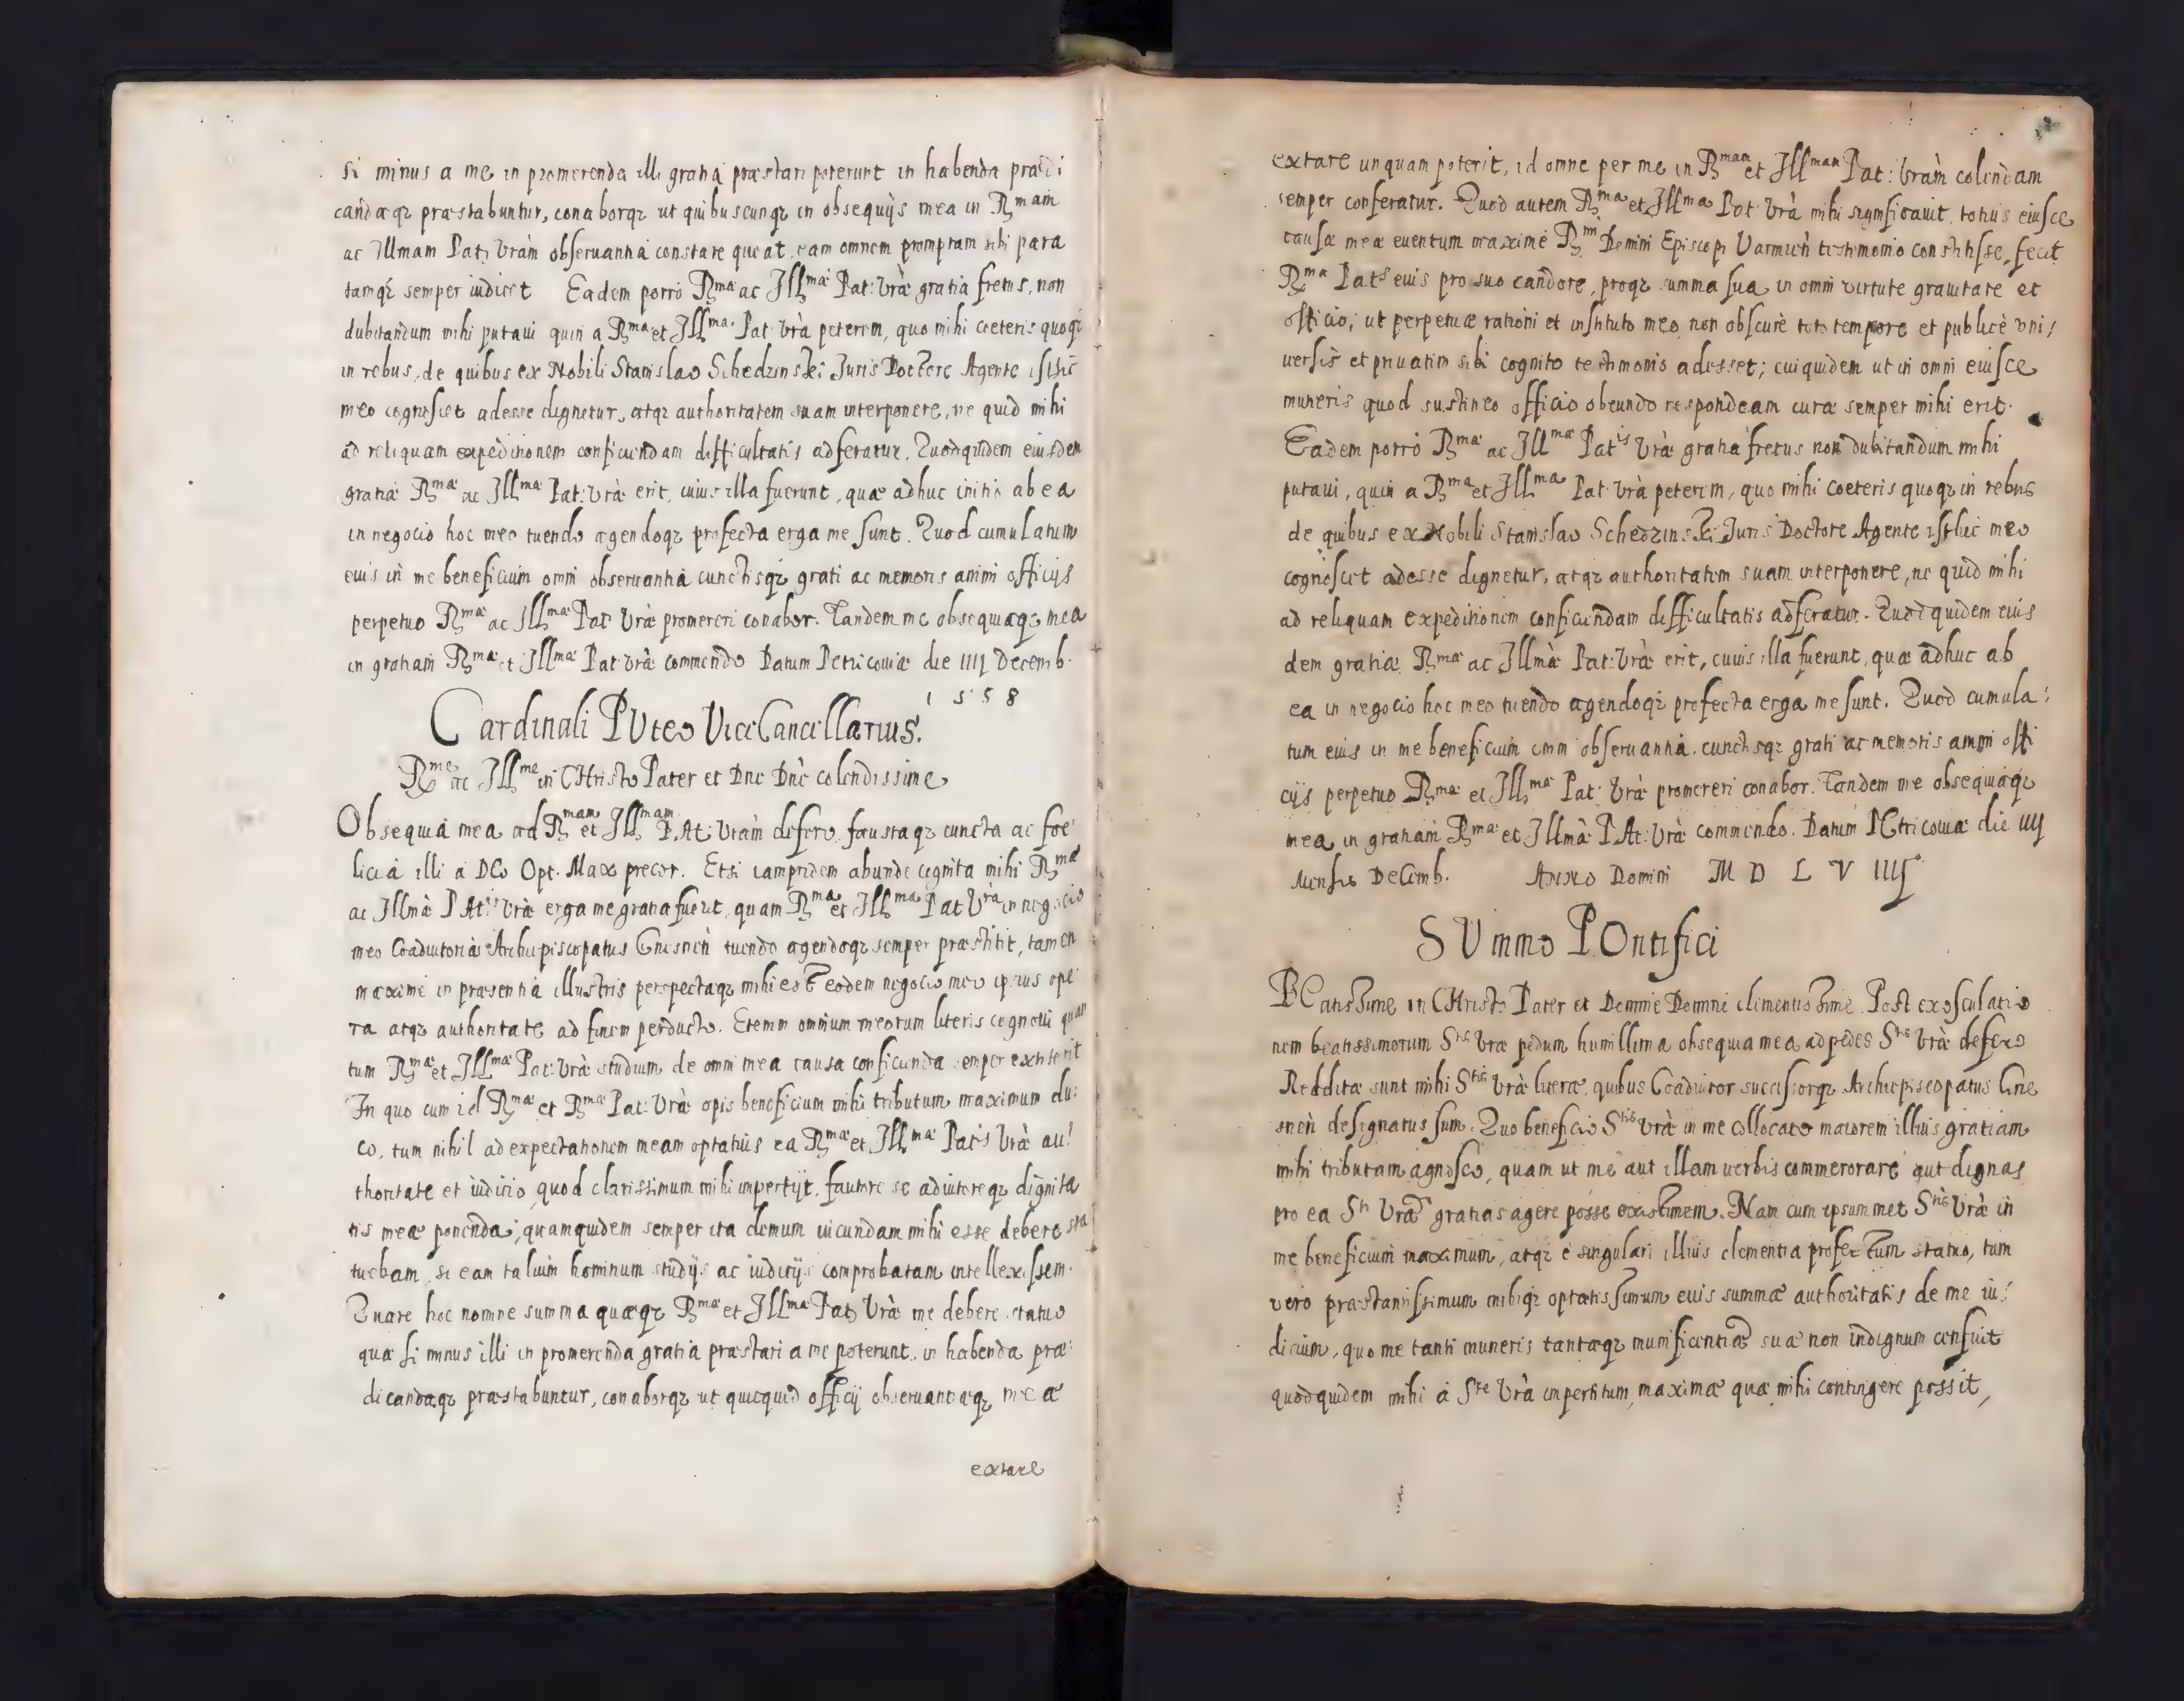 si minus a me in promerenda illi gratia præstari poterunt in habenda prædi
candaqȝ præstabuntur, conaborqȝ ut quibuscunqȝ in obsequijs mea in Rmam
ac Illmam Pat: Vram obseruantia constare queat, eam omnem promptam sibi para
tamqȝ semper iudicet Eadem porro Rmæ ac Illmæ Pat: Vræ gratia fretus, non
dubitandum mihi putaui quin a Rma et Illma Pat: Vra peterem, quo mihi coeteris quoqȝ
in rebus, de quibus ex Nobili Stanislao Schedzinski Juris Doctore Agente isthic
meo cognoscet adesse dignetur, atqȝ authoritatem suam interponere, ne quid mihi
ad reliquam expeditionem conficiendam difficultatis adferatur. Quodquidem eiusdem
gratiæ Rmæ ac Illmæ Pat: Vræ erit, cuius illa fuerunt, quæ adhuc initio ab ea
in negocio hoc meo tuendo agendoqȝ profecta erga me sunt. Quod cumulatum
euis in me beneficium omni obseruantia cunctisqȝ grati ac memoris animi officijs
perpetuo Rmæ ac Illmæ Pat: Vræ promereri conabor. Tandem me obsequiaqȝ mea
in gratiam Rmæ et Illmæ Pat: Vræ commendo Datum Petricouiæ die IIIJ Decemb.
1558
Cardinali PUteo ViceCancellarius.
Rme ac Illme in CHristo Pater et Dne Dne colendissime
Obsequia mea ad Rmam et Illmam PAt: Vram defero, faustaqȝ cuncta ac foe
licia illi a DEo Opt. Max precor. Etsi iampridem abunde cognita mihi Rmæ
ac Illmæ PAtis Vræ erga me gratia fuerit, quam Rma et Illma Pat Vra in negocio
meo Coadiutoriæ Archiepiscopatus Gnesnen tuendo agendoqȝ semper præstitit, tamen
maxime in præsentia illustris perspectaqȝ mihi est eodem negocio meo ipsius ope
ra atqȝ authoritate ad finem perducto. Etenim omnium meorum literis cognoui quan
tum Rmæ et Illmæ Pat: Vræ studium, de omni mea causa conficienda semper extiterit
In quo cum id Rmæ et Rmæ Pat: Vræ opis beneficium mihi tributum maximum du:
co, tum nihil ad expectationem meam optatius ea Rmæ et Illmæ Patis Vræ au:
thoritate et iudicio, quod clarissimum mihi impertijt, fautore se adiutoreqȝ dignita
tis meæ ponenda, quamquidem semper ita demum iucundam mihi esse debere sta
tuebam, si eam talium hominum studijs ac iudicijs comprobatam intellexissem.
Quare hoc nomine summa quæqȝ Rmæ et Illmæ Pat: Vræ me debere statuo
quæ si minus illi in promerenda gratia præstari a me poterunt, in habenda præ:
dicandaqȝ præstabuntur, conaborqȝ ut quicquid officij obseruantiæqȝ meæ
extare
extare unquam poterit, id omne per me in Rmam et Illmam Pat: Vram colendam
semper conferatur. Quod autem Rma et Illma Pat: Vra mihi significauit, totius eiusce
causæ meæ euentum maxime Rmi Domini Episcopi Varmien testimonio constitisse, fecit
Rma Pats euis pro suo candore, proqȝ summa sua in omni virtute grauitate et
officio, ut perpetuæ rationi et instituto meo non obscure toto tempore et publice vni:
uersis et priuatim sibi cognito testimonis adesset; cuiquidem ut in omni eiusce
muneris quod sustineo officio obeundo respondeam curæ semper mihi erit.
Eadem porro Rmæ ac Illmæ Patis Vræ gratia fretus non dubitandum mihi
putaui, quin a Rma et Illma Pat: Vra peterem, quo mihi coeteris quoqȝ in rebus
de quibus ex Nobili Stanislao Schedzinski Juris Doctore Agente isthic meo
cognoscet adesse dignetur, atqȝ authoritatem suam interponere, ne quid mihi
ad reliquam expeditionem conficiendam difficultatis adferatur. Quod quidem eius
dem gratiæ Rmæ ac Illmæ Pat: Vræ erit, cuius illa fuerunt, quæ adhuc ab
ea in negocio hoc meo tuendo agendoqȝ profecta erga me sunt. Quod cumula:
tum euis in me beneficium omni obseruantia, cunctisqȝ grati ac memoris animi offi
cijs perpetuo Rmæ et Illmæ Pat: Vræ promereri conabor. Tandem me obsequiaqȝ
mea in gratiam Rmæ et Illmæ PAt: Vræ commendo. Datum PEtricouiæ die IIIJ
Mensis Decemb. Anno Domini M D L V IIIJ
SUmmo POntifici
BEatissime in CHristo Pater et Domine Domine clementissime. Post exosculatio
nem beatissimorum Stis Vræ pedum humillima obsequia mea ad pedes Stis Vræ defero
Redditæ sunt mihi Stis Vræ literæ, quibus Coadiutor successorqȝ Archiepiscopatus Gne
snen designatus sum. Quo beneficio Stis Vræ in me collocato maiorem illius gratiam
mihi tributam agnosco, quam ut me aut illam verbis commerorare aut dignas
pro ea Sti Vræ gratias agere posse existimem. Nam cum ipsummet Stis Vræ in
me beneficium maximum, atqȝ e singulari illius clementia profectum statuo, tum
vero præstantissimum mihiqȝ optatissimum euis summæ authoritatis de me iu:
dicium, quo me tanti muneris tantæqȝ munificentiæ suæ non indignum censuit
quodquidem mihi a Ste Vra impertitum, maximæ quæ mihi contingere possit,